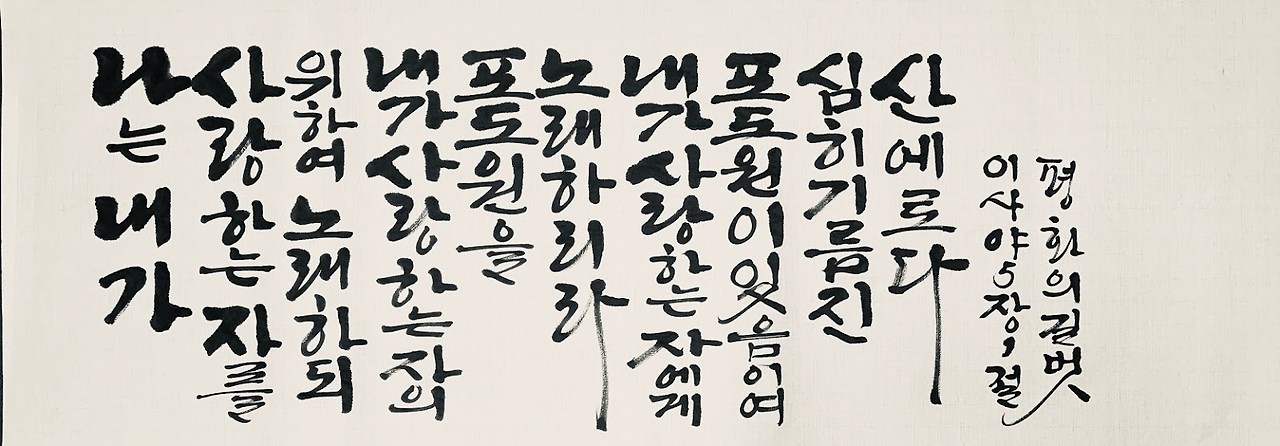 나는 내가
사랑하는 자를
위하여 노래하되
내가 사랑하는 자의
포도원을
노래하리라
내가 사랑하는 자에게
포도원이 있음이여
심히 기름진
산에로다
이사야 5장 1절
평화의 길벗